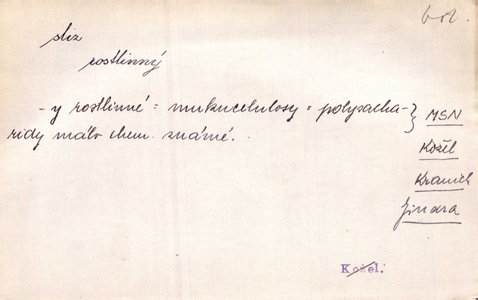 bot.
sliz
rostlinný
- y rostlinné = mukucelulosy = polysacha-
ridy málo chem. známé.
MSN
Kožel
Kranich
Jindra
Kožel.